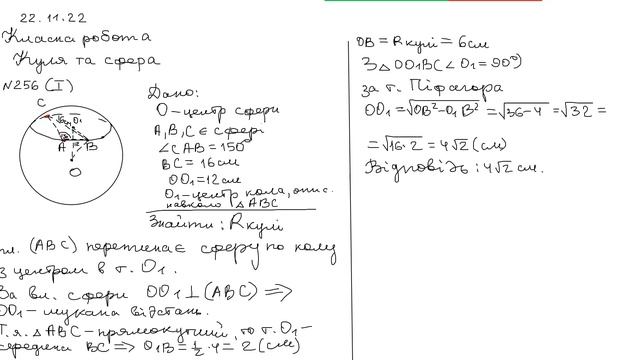 22.11.22
Класна робота
Куля та сфера
N256 (I)
C
O₁
A
B
O
Дано:
O - центр сфери
A, B, C ∈ сфері
∠CAB = 150°
BC = 16 см
OO₁ = 12 см
O₁ - центр кола, опис.
навколо △ABC
Знайти: Rкулі
пл. (ABC) перетинає сферу по колу
з центром в т. O₁.
За вл. сфери OO₁ ⊥ (ABC) ⇒
OO₁ - шукана відстань.
Т.я. △ABC - прямокутний, то т. O₁ -
середина BC ⇒ O₁B = ½ · 4 = 2 (см)
OB = Rкулі = 6 см
З △OO1BC (∠O₁ = 90°)
за т. Піфагора
OO₁ = √OB² - O₁B² = √36 - 4 = √32 =
= √16·2 = 4√2 (см)
Відповідь: 4√2 см.